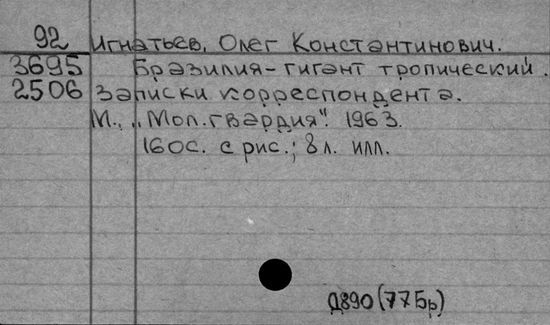 92 Игнатьев, Олег Константинович.
3695 Бразилия - гигант тропический.
2506 Записки корреспондента.
М., „Мол.гвардия". 1963.
160с. с рис.; 8 л. илл.
Д890(77Бр)